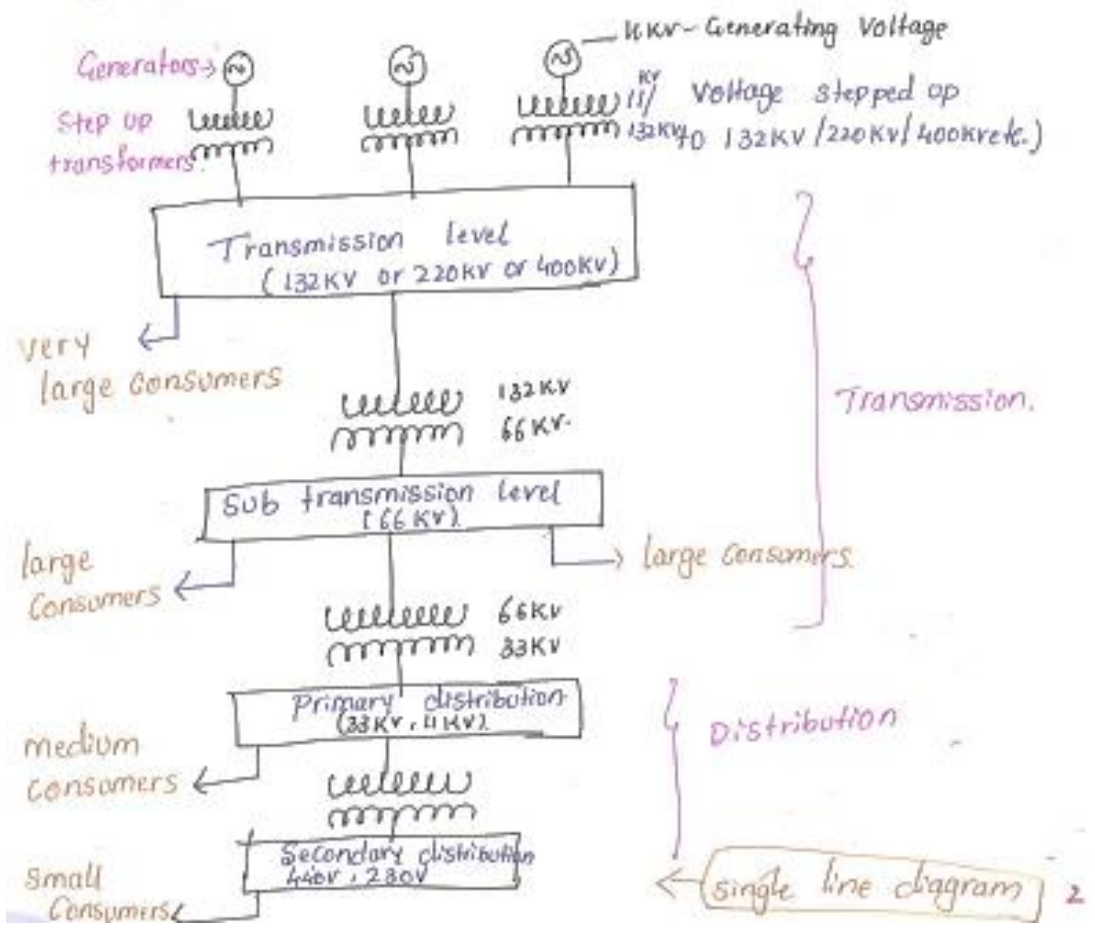 11KV- Generating Voltage
Generators→
Step up
transformers.
11KV/
132KV
Voltage stepped up
to 132KV/220KV/400KV etc.)
Transmission level
(132KV or 220KV or 400KV)
very
large consumers
132KV
66KV.
Transmission.
Sub transmission level
(66KV).
large
consumers
large consumers.
66KV
33KV
Primary distribution
(33KV, 11KV).
Distribution
medium
consumers
Secondary distribution
440V, 230V
small
consumers
single line diagram
2